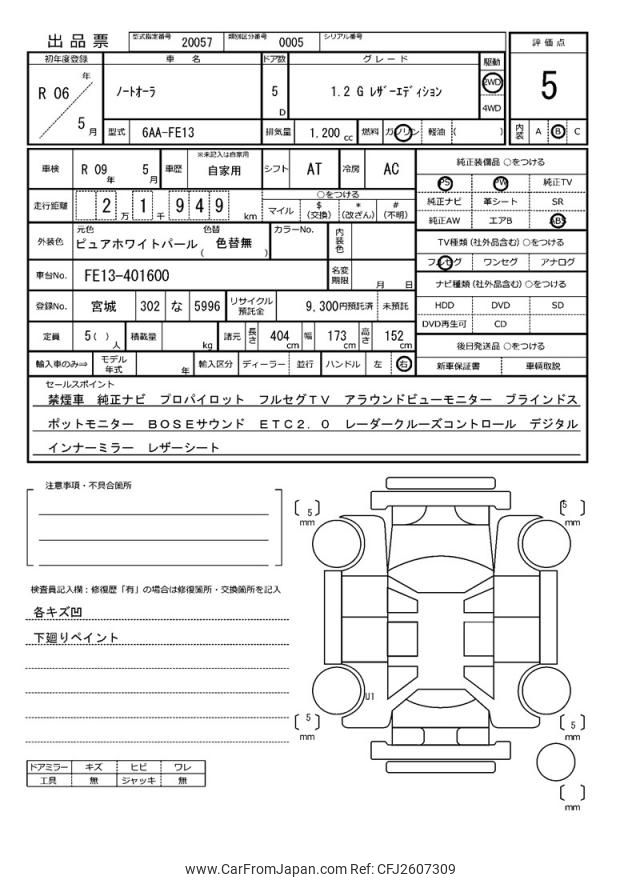 出品票 型式指定番号 20057 類別区分番号 0005 シリアル番号
評価点
5
内装 A B C
初年度登録 車名 ドア数 グレード 駆動
R 06 年 5 月
ノートオーラ 5 D 1.2 G レザーエディション 2WD 4WD
型式 6AA-FE13 排気量 1,200 cc 燃料 ガソリン 軽油 ( )
車検 R 09 年 5 月 車歴 ※未記入は自家用 自家用 シフト AT 冷房 AC
走行距離 2 万 1 千 9 4 9 km ○をつける マイル $ (交換) * (改ざん) # (不明)
外装色 元色 ピュアホワイトパール 色替 ( 色替無 ) カラーNo. 内装色
車台No. FE13-401600 名変期限 月 日
登録No. 宮城 302 な 5996 リサイクル預託金 9,300円預託済 未預託
定員 5( ) 人 積載量 kg 諸元 長さ 404 cm 幅 173 cm 高さ 152 cm
輸入車のみ⇨ モデル年式 年 輸入区分 ディーラー 並行 ハンドル 左 右
純正装備品 ○をつける
PS PW 純正TV
純正ナビ 革シート SR
純正AW エアB ABS
TV種類 (社外品含む) ○をつける
フルセグ ワンセグ アナログ
ナビ種類 (社外品含む) ○をつける
HDD DVD SD
DVD再生可 CD
後日発送品 ○をつける
新車保証書 車輌取説
セールスポイント
禁煙車 純正ナビ プロパイロット フルセグTV アラウンドビューモニター ブラインドス
ポットモニター BOSEサウンド ETC2.0 レーダークルーズコントロール デジタル
インナーミラー レザーシート
注意事項・不具合箇所
検査員記入欄:修復歴「有」の場合は修復箇所・交換箇所を記入
各キズ凹
下廻りペイント
ドアミラー キズ ヒビ ワレ
工具 無 ジャッキ 無
[ 5 ] mm
[ 5 ] mm
U1
[ 5 ] mm
[ 5 ] mm
[ ] mm
www.CarFromJapan.com Ref: CFJ2607309